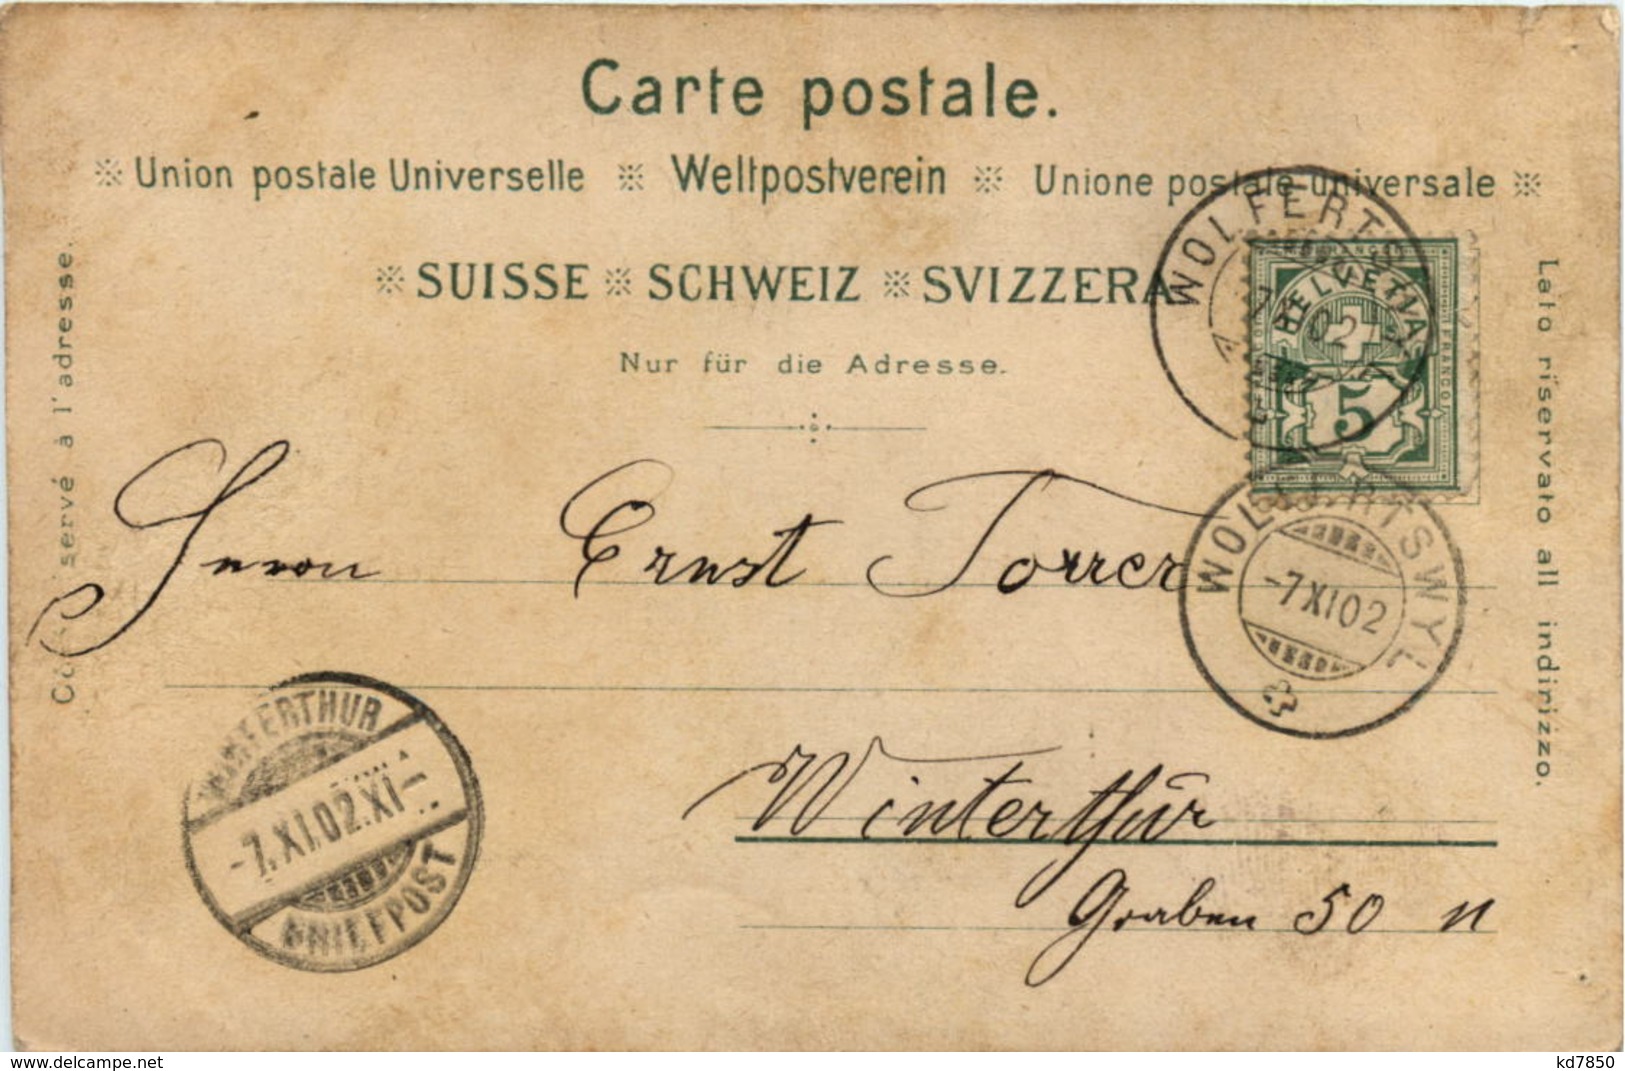 Carte postale.
Union postale Universelle Weltpostverein Unione postale universale
SUISSE SCHWEIZ SVIZZERA
Nur für die Adresse.
servé à l'adresse.
Lato riservato all indirizzo.
WOLFERTS
HELVETIA
FRANCO
5
02
WOLFERTSWYL
-7 XI 02
Herrn Ernst Forrer
WINTERTHUR
-7.XI.02.XI-
BRIEFPOST
Winterthur
Graben 50
www.delcampe.net
kd7850